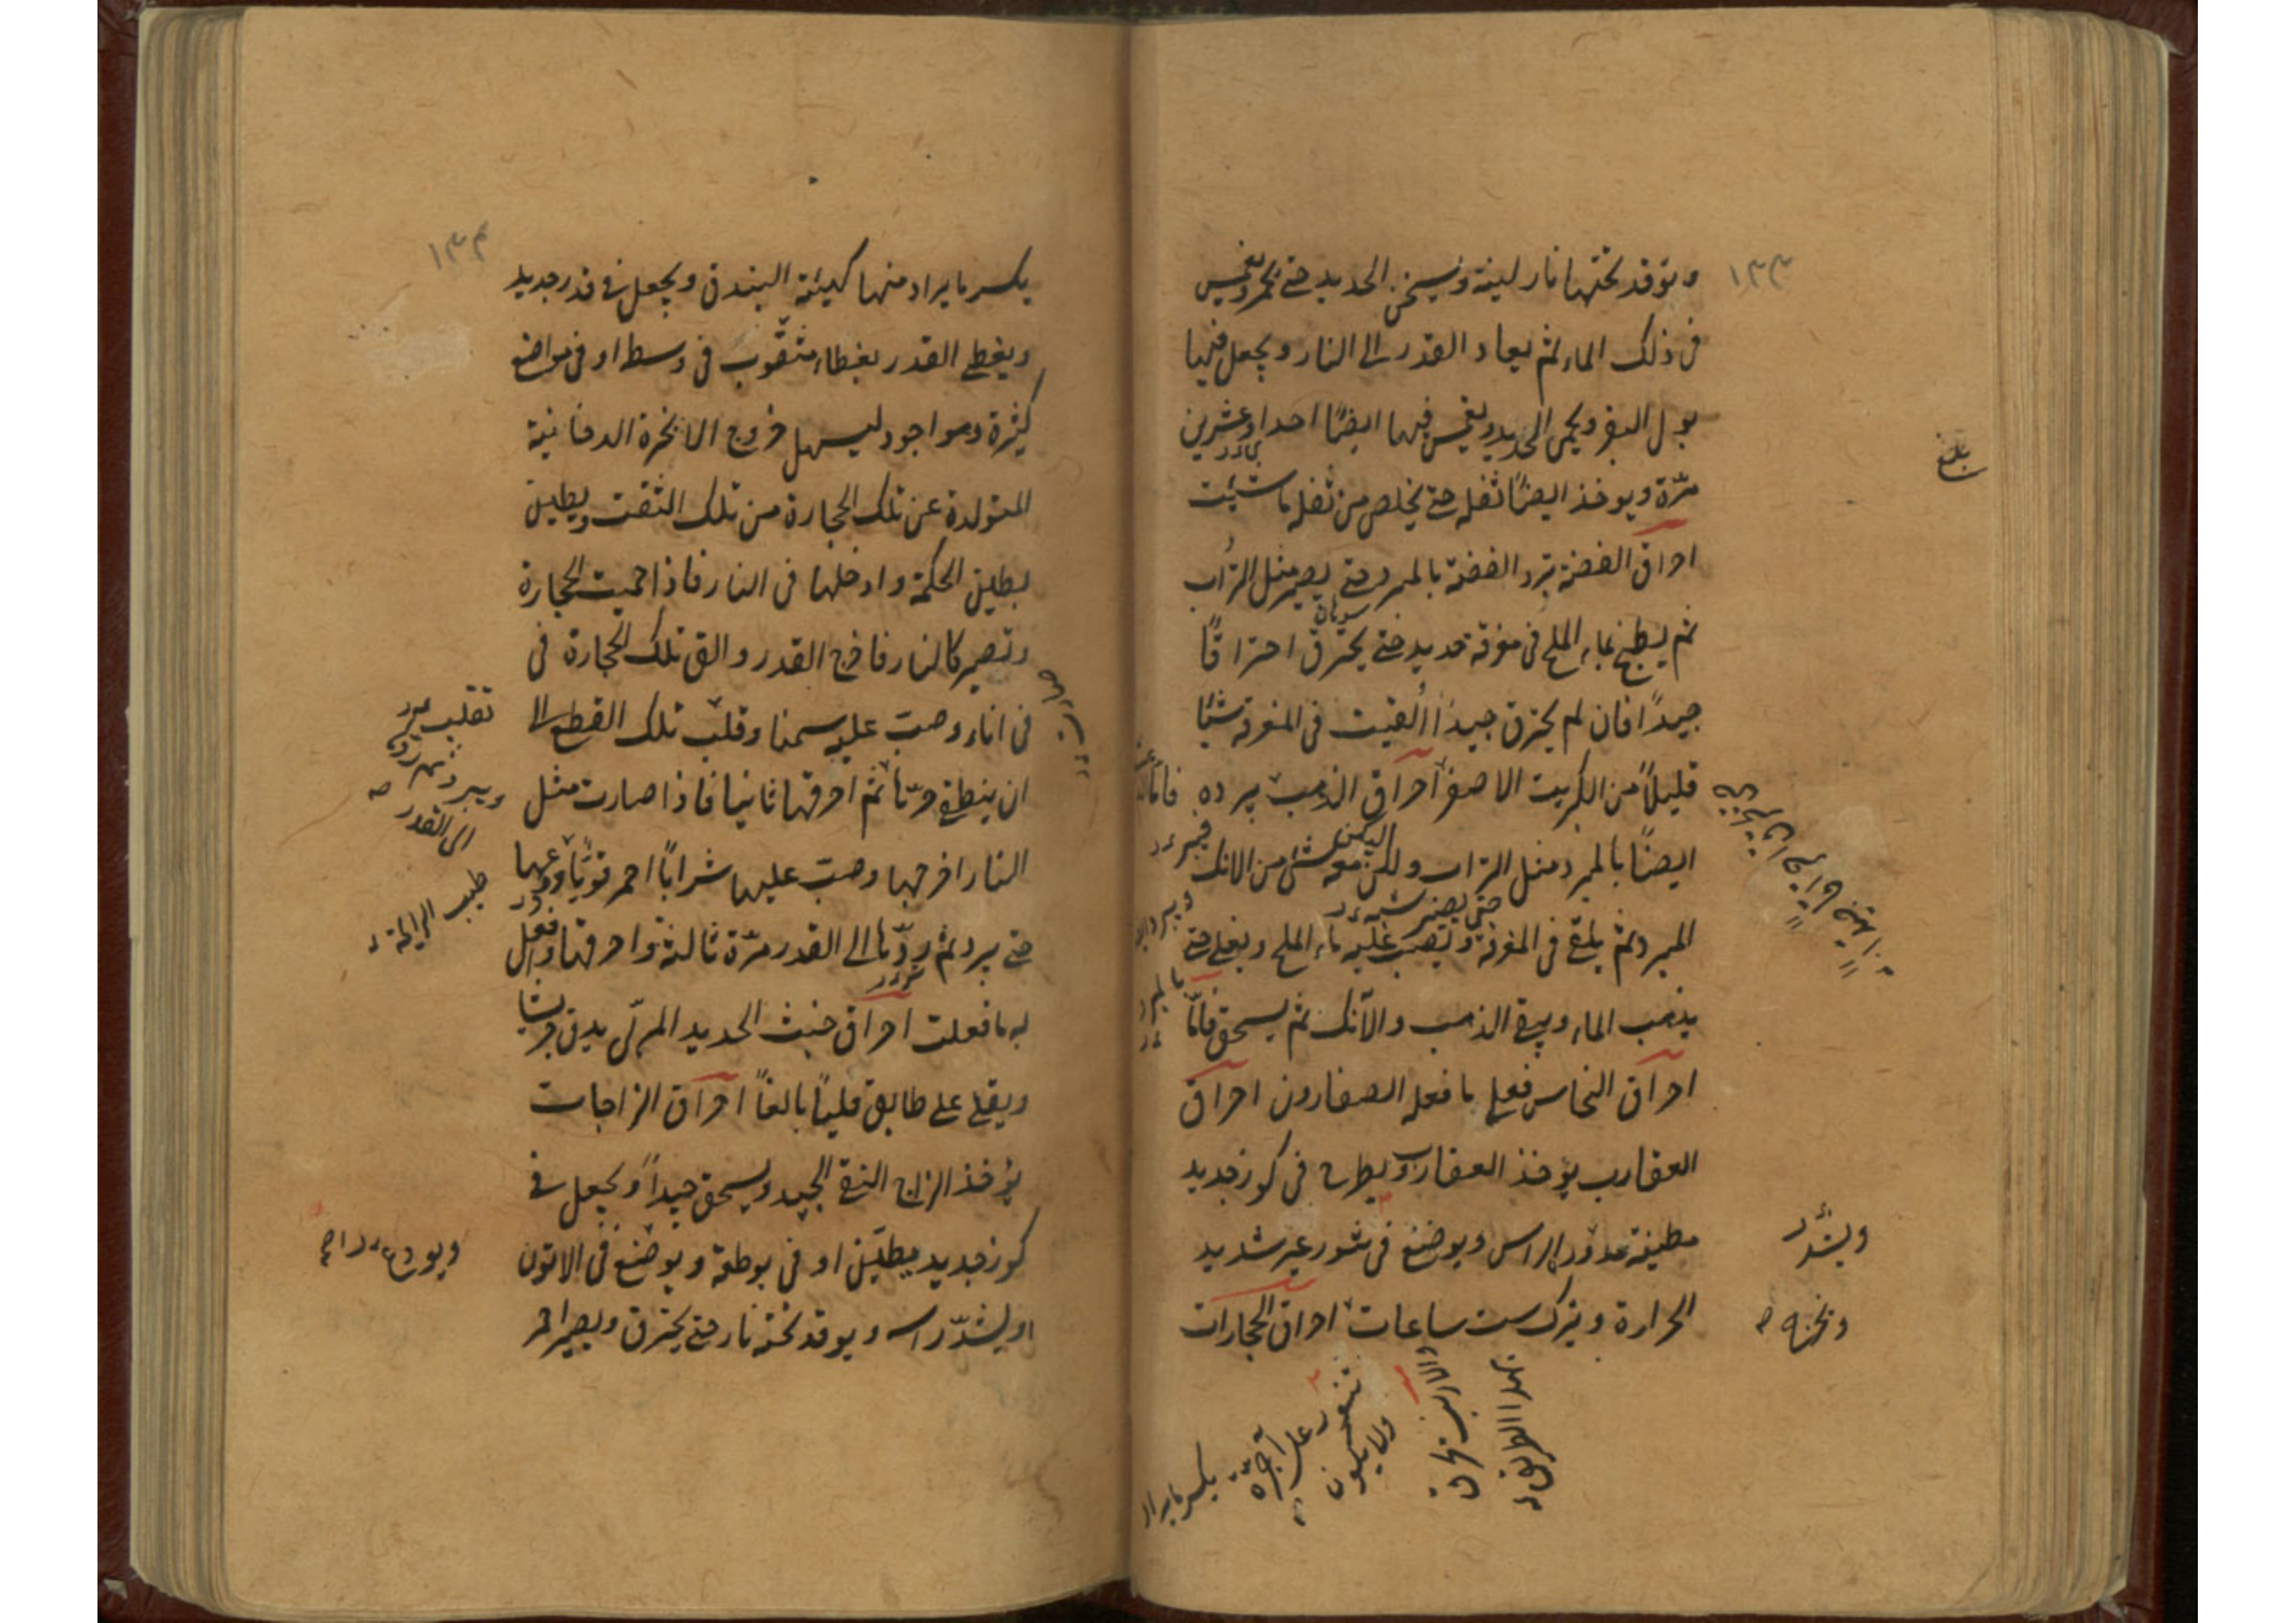 ١٣٣
وتوقد تحتها نار لينة ويسخن الحديد حتى يحمر ويغمس
في ذلك الماء ثم يعاد القدر الى النار ويجعل فيها
بول البقر ويحمى الحديد ويغمس فيها ايضًا احدا وعشرين
مرّة ويوخذ ايضًا ثفله حتى يخلص من ثفله ما شئت
احراق الفضة تبرد الفضة بالمبرد حتى يصير مثل التراب
ثم يطبخ بماء الملح في مغرفة حديد حتى يحترق احتراقًا
جيدًا فان لم يحترق جيدًا القيت في المغرفة شيئا
قليلاً من الكبريت الاصفر احراق الذهب يبرده
ايضًا بالمبرد مثل التراب ولكن معه شئ من الانك
المبرد ثم يلقى في المغرفة ويصب عليه ماء الملح ويغلى حتى
يذهب الماء ويبقى الذهب والآنك ثم يسحق فامّا
احراق النحاس فعلى ما فعله الصفارون احراق
العقارب يؤخذ العقارب ويطرح في كوز جديد
مطينة مدور الراس ويوضع في تنور غير شديد
الحرارة ويترك ست ساعات احراق الحجارات
بلغ
ويشدّ
هذا الطريق
ولا يكون
على آجرّة
يكسر ما يراد
١٣٤
يكسر ما يراد منها كهيئة البندق ويجعل في قدر جديد
ويغطى القدر بغطاء مثقوب في وسط او في مواضع
كثيرة وهو اجود ليسهل خروج الابخرة الدخانية
المتولدة عن تلك الحجارة من تلك الثقب ويطين
بطين الحكمة وادخلها في النار فاذا حميت الحجارة
وتصير كالنار فاخرج القدر والق تلك الحجارة في
في اناء وصب عليه سمنا وقلب تلك القطع الى
ان ينطفى حرّها ثم احرقها ثانيا فاذا صارت مثل
النار اخرجها وصب عليها شرابًا احمر قويًا ودعها
حتى يبرد ثم ردّها الى القدر مرّة ثالثة واحرقها وافعل
به ما فعلت احراق خبث الحديد المربّى يدق جريشا
ويقلى على طابق قليًا بالغًا احراق الزاجات
يؤخذ الزاج النقي الجيد ويسحق جيدًا ويجعل في
كوز جديد مطيّن او في بوطقة ويوضع في الاتون
او يشدّ راسه ويوقد تحته نار حتى يحترق ويصير احمر
الى القدر
طيب الرايحة